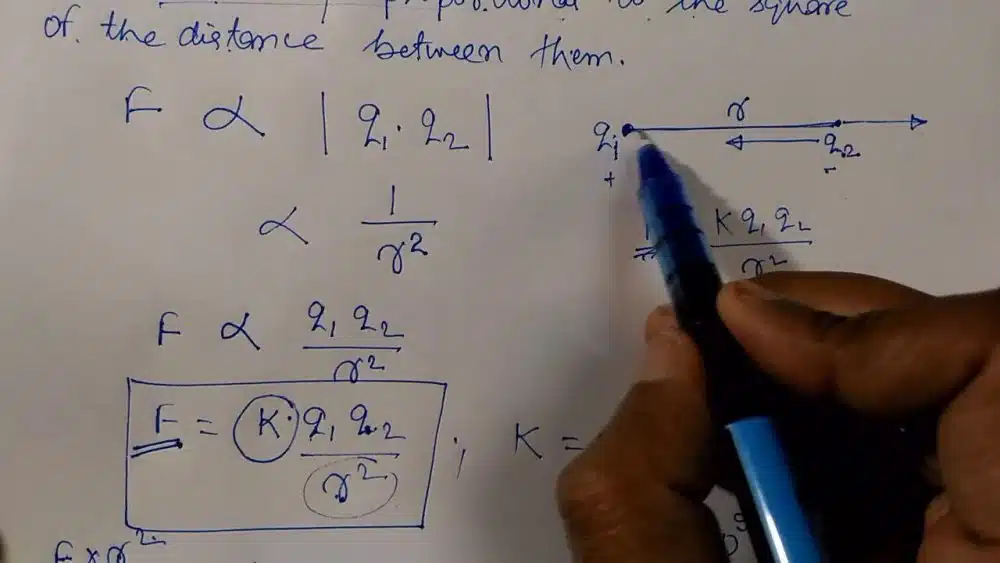 to the square
of the distance between them.
F ∝ | q₁ · q₂ |
∝ 1/r²
F ∝ q₁ q₂ / r²
F = K · q₁ q₂ / r² ; K =
F × r²
r
q₁ q₂
+ -
K q₁ q₂ / r²